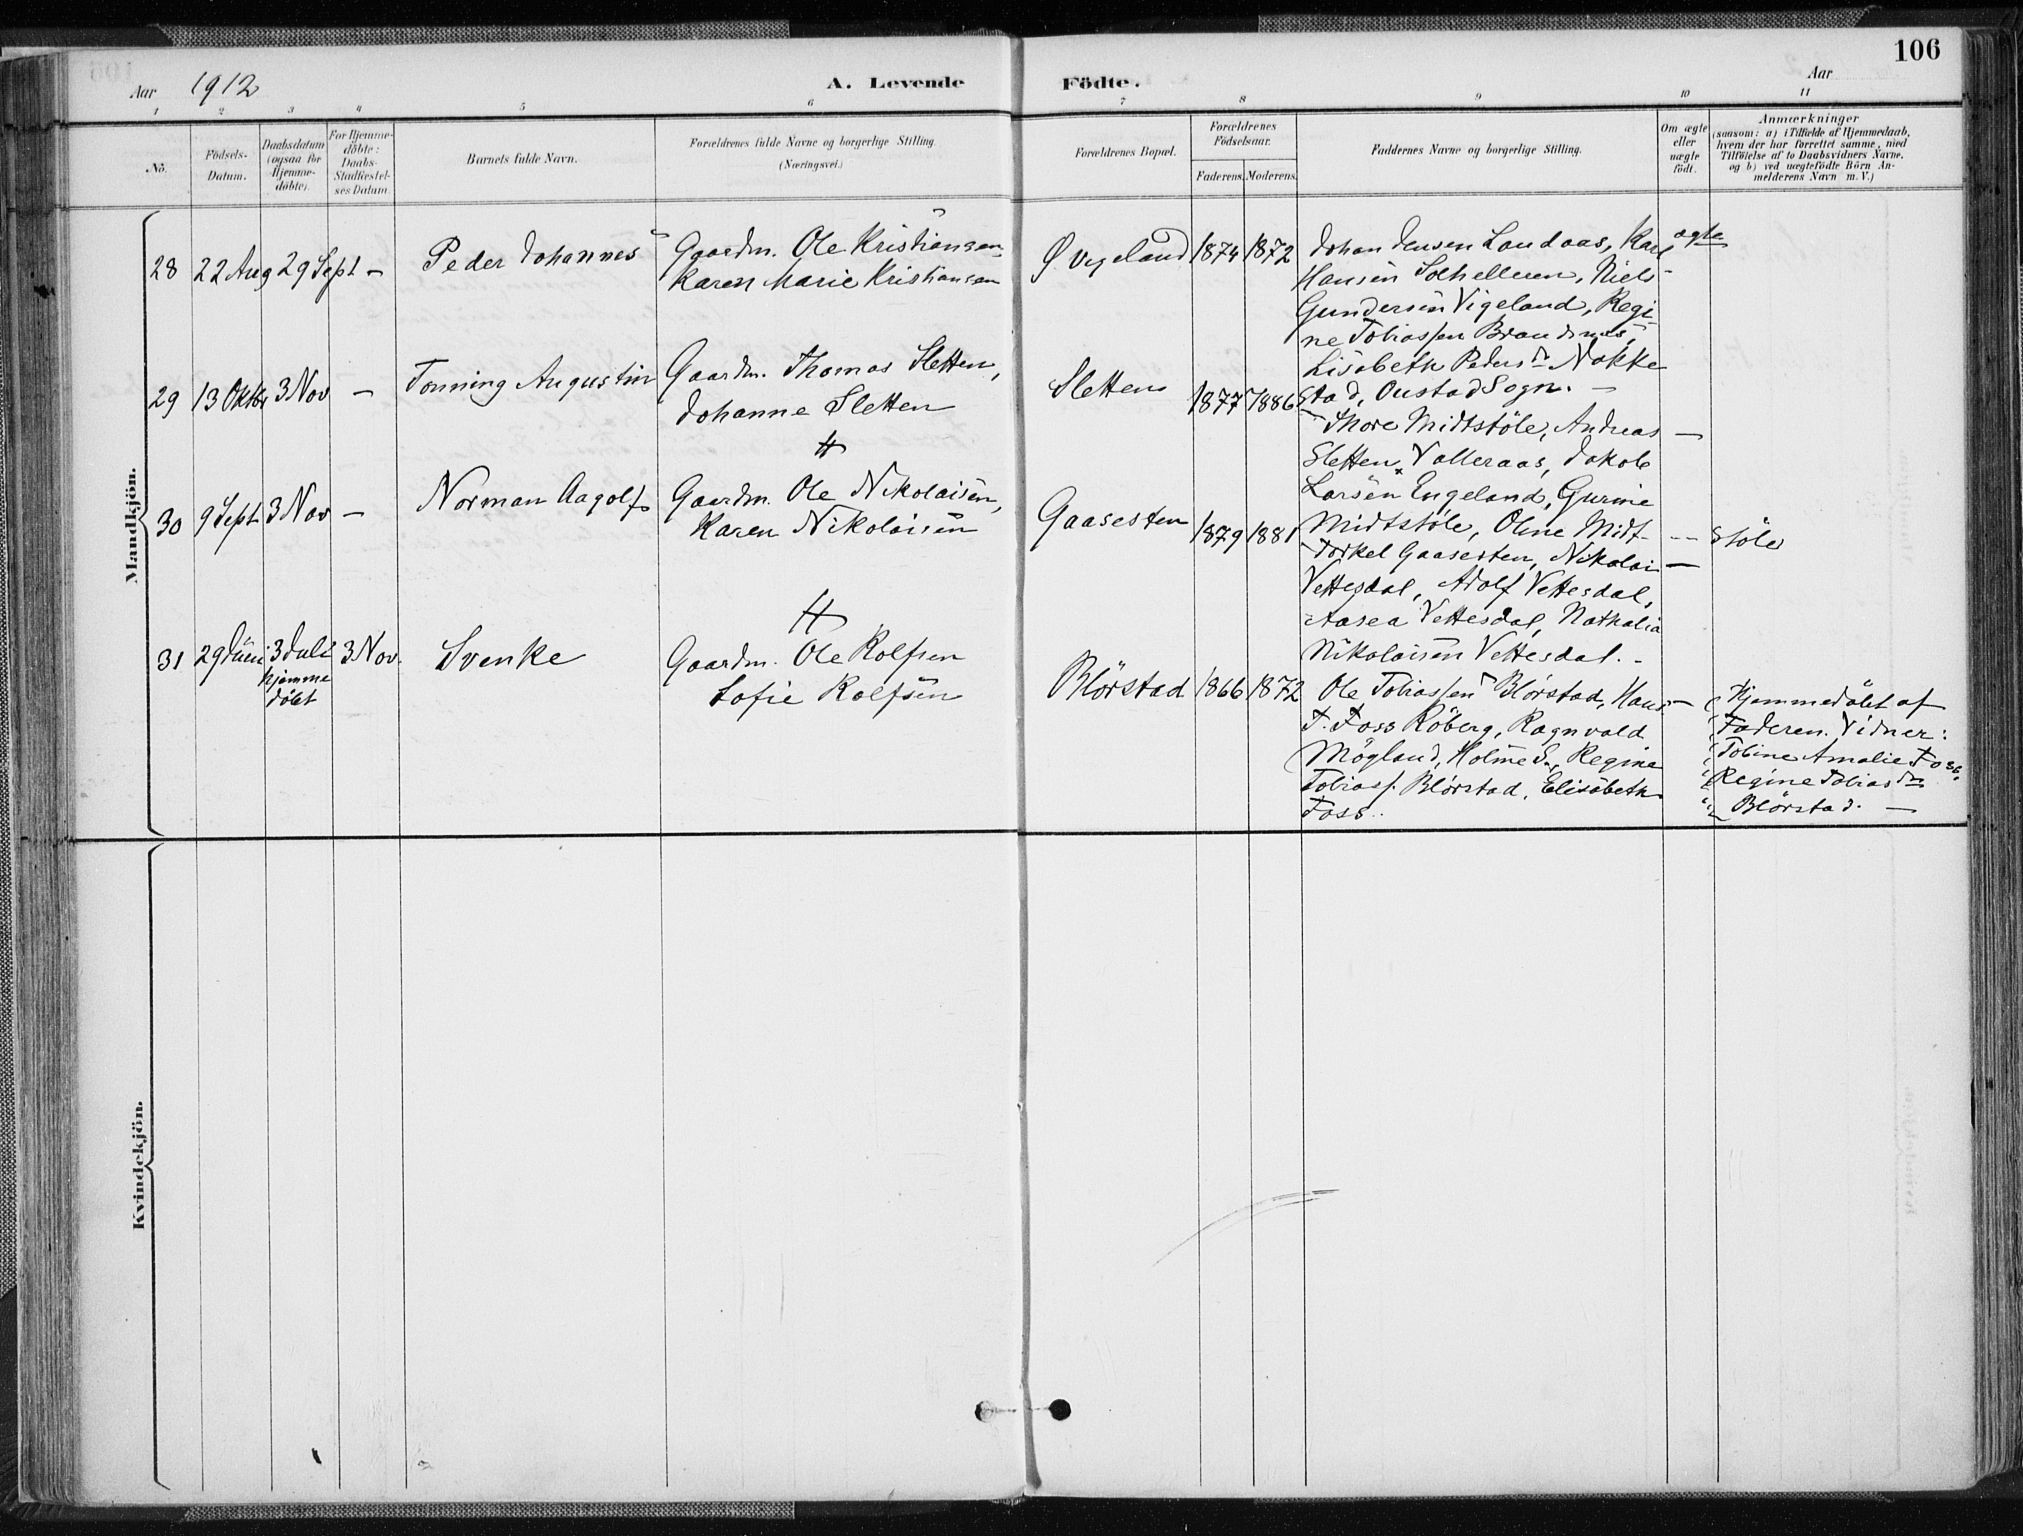 106
Aar 1912 A. Levende Födte. Aar
1 2 3 4 5 6 7 8 9 10 11
No.
Födsels-
Datum.
Daabsdatum
(ogsaa for
Hjemme-
döbte).
For Hjemme-
döbte:
Daabs-
Stadfæstel-
ses Datum.
Barnets fulde Navn.
Forældrenes fulde Navne og borgerlige Stilling
(Næringsvei.)
Forældrenes Bopæl.
Forældrenes
Födselsaar.
Faderens. Moderens.
Faddernes Navne og borgerlige Stilling.
Om ægte
eller
uægte
födt.
Anmærkninger
(saasom: a) i Tilfælde af Hjemmedaab,
hvem der har forrettet samme, med
Tilföielse af to Daabsvidners Navne.
og b) ved uægtefödte Börn An-
melderens Navn m. V.)
Mandkjön.
28 22 Aug 29 Sept - Peder Johannes
Gaardm. Ole Kristiansen
Karen Marie Kristiansen
Ø. Vigeland 1874 1872
Johan Jensen Landaas, Karl
Hansen Solhelleren, Niels
Gundersen Vigeland, Regi-
ne Tobiassen Brandsnes,
Lisabeth Pedersdr Nokke
stad, Oustad Sogn. -
ægte
29 13 Oktbr 3 Nov - Tonning Augustin
Gaardm. Thomas Sletten,
Johanne Sletten
Sletten 1877 1886
Thore Midtstöle, Andreas
Sletten, Valleraas, Jakob
Larsen Engeland, Gurine
Midtstöle, Oline Midt- -- stöle
30 9 Sept 3 Nov - Norman Aagolf
Gaardm. Ole Nikolaisen,
Karen Nikolaisen
Gaasesten 1879 1881
Torkel Gaasesten, Nikolai -
Vettesdal, Adolf Vettesdal,
Aasea Vettesdal, Nathalia
Nikolaisen Vettesdal. -
31 29 Juni 3 Juli 3 Nov. Svenke
hjemme
döbt
Gaardm. Ole Rolfsen
Sofie Rolfsen
Blörstad 1866 1872
Ole Tobiassen Blörstad, Hans -
T. Foss Röberg, Ragnvald
Mögland, Holme S., Regine
Tobiass. Blörstad, Elisabeth
Foss.
Hjemmedöbt af
Faderen. Vidner:
Tobine Amalie Foss,
Regine Tobiasdr
Blörstad. -
Kvindekjön.